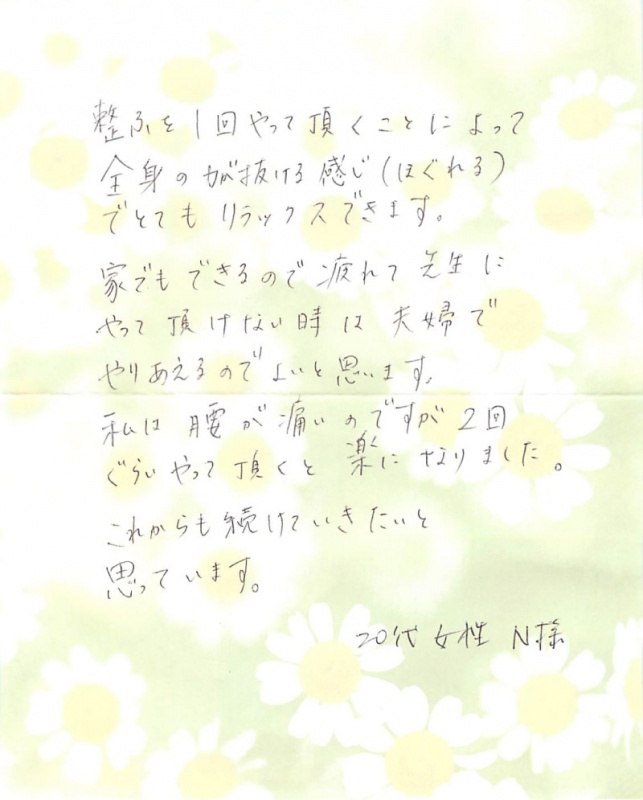 整ふを1回やって頂くことによって
全身の力が抜ける感じ(ほぐれる)
でとてもリラックスできます。
家でもできるので疲れて先生に
やって頂けない時は夫婦で
やりあえるのでよいと思います。
私は腰が痛いのですが2回
ぐらいやって頂くと楽になりました。
これからも続けていきたいと
思っています。
20代女性 N様